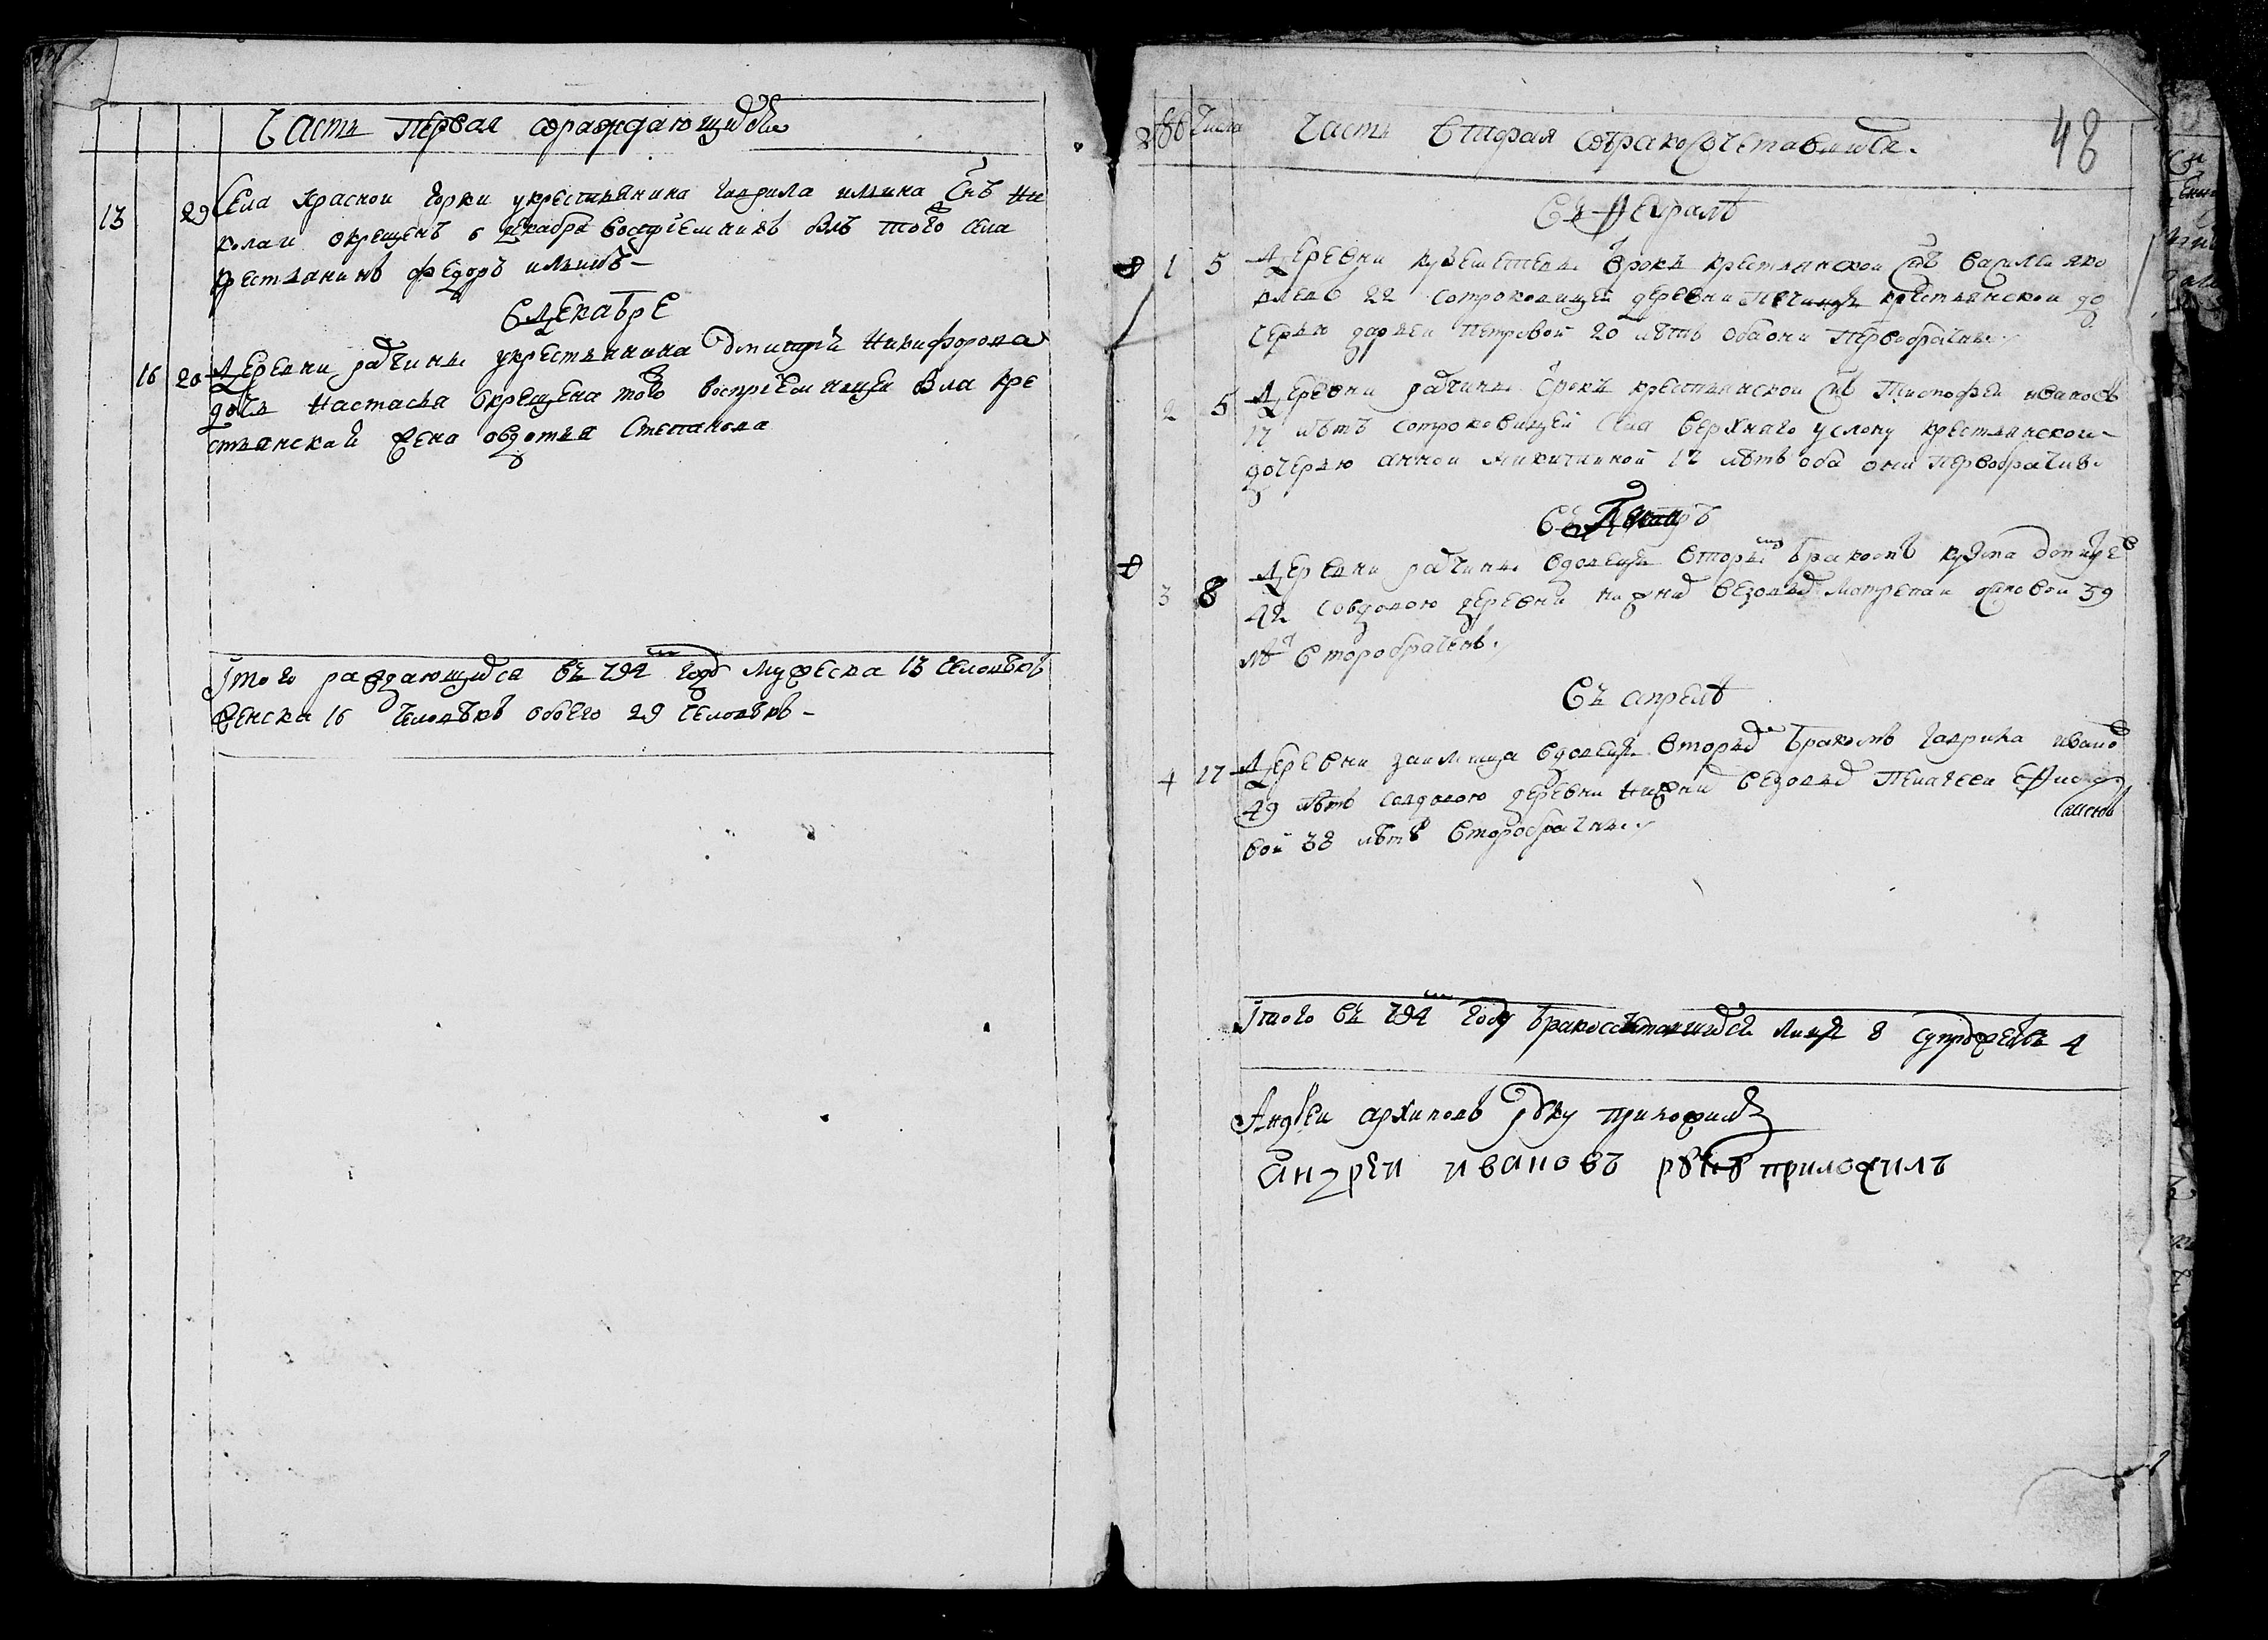 Часть первая ораждающихся
13 29 Села красной горки укрестьянина гаврила ильина снъ ни
колаи окрещенъ 6 декабря восприемникъ былъ того села
крестьянинъ федоръ ильинъ
в декабре
16 20 Деревни рачины укрестьянина дмитрей никифорова
дочь настасья окрещена того восприемницей была кре
стьянская жена овдотья степанова
Итого раждающихся въ 794 м году мужеска 13 человекъ
женска 16 человѣкъ обоего 29 человѣкъ
числа Часть вторая обракосочетавшихся 48
Въ феврале
1 5 Деревни отрокъ крестьянской снъ василей яко
влевъ 22 сотроковицей деревни крестьянской до
черью дарьей петровой 20 лѣтъ оба они первобрачные
2 5 Деревни рачины отрокъ крестьянской снъ тимофей ивановъ
17 лѣтъ сотроковицей села верхнаго услону крестьянской
дочерью анной никитиной 17 лѣтъ оба они первобрачные
Въ
3 8 Деревни рачины вдовецъ вторымъ бракомъ кузма
42 совдовою деревни нижнихъ вязовыхъ матреной 39
лѣтъ второбрачные
Въ апреле
4 17 Деревни займища вдовецъ вторымъ бракомъ гаврила иванов
49 лѣтъ совдовою деревни нижнихъ вязовыхъ пелагеей
вой 38 лѣтъ второбрачные
Итого въ 794 м году бракосочетавшихся лицъ 8 супружествъ 4
Андреи архиповъ руку приложилъ
андреи ивановъ руку приложилъ